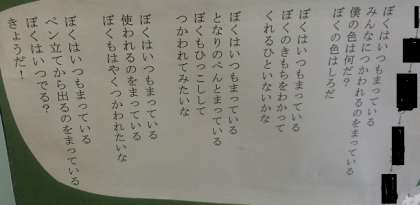 ぼくはいつもまっている
みんなにつかわれるのをまっている
僕の色は何だ?
ぼくの色はしろだ
ぼくはいつもまっている
ぼくのきもちをわかって
くれるひといないかな
ぼくはいつもまっている
となりのぺんとまっている
ぼくもひっこしして
つかわれてみたいな
ぼくはいつもまっている
使われるのをまっている
ぼくもはやくつかわれたいな
ぼくはいつもまっている
ペン立てから出るのをまっている
ぼくはいつでる?
きょうだ!